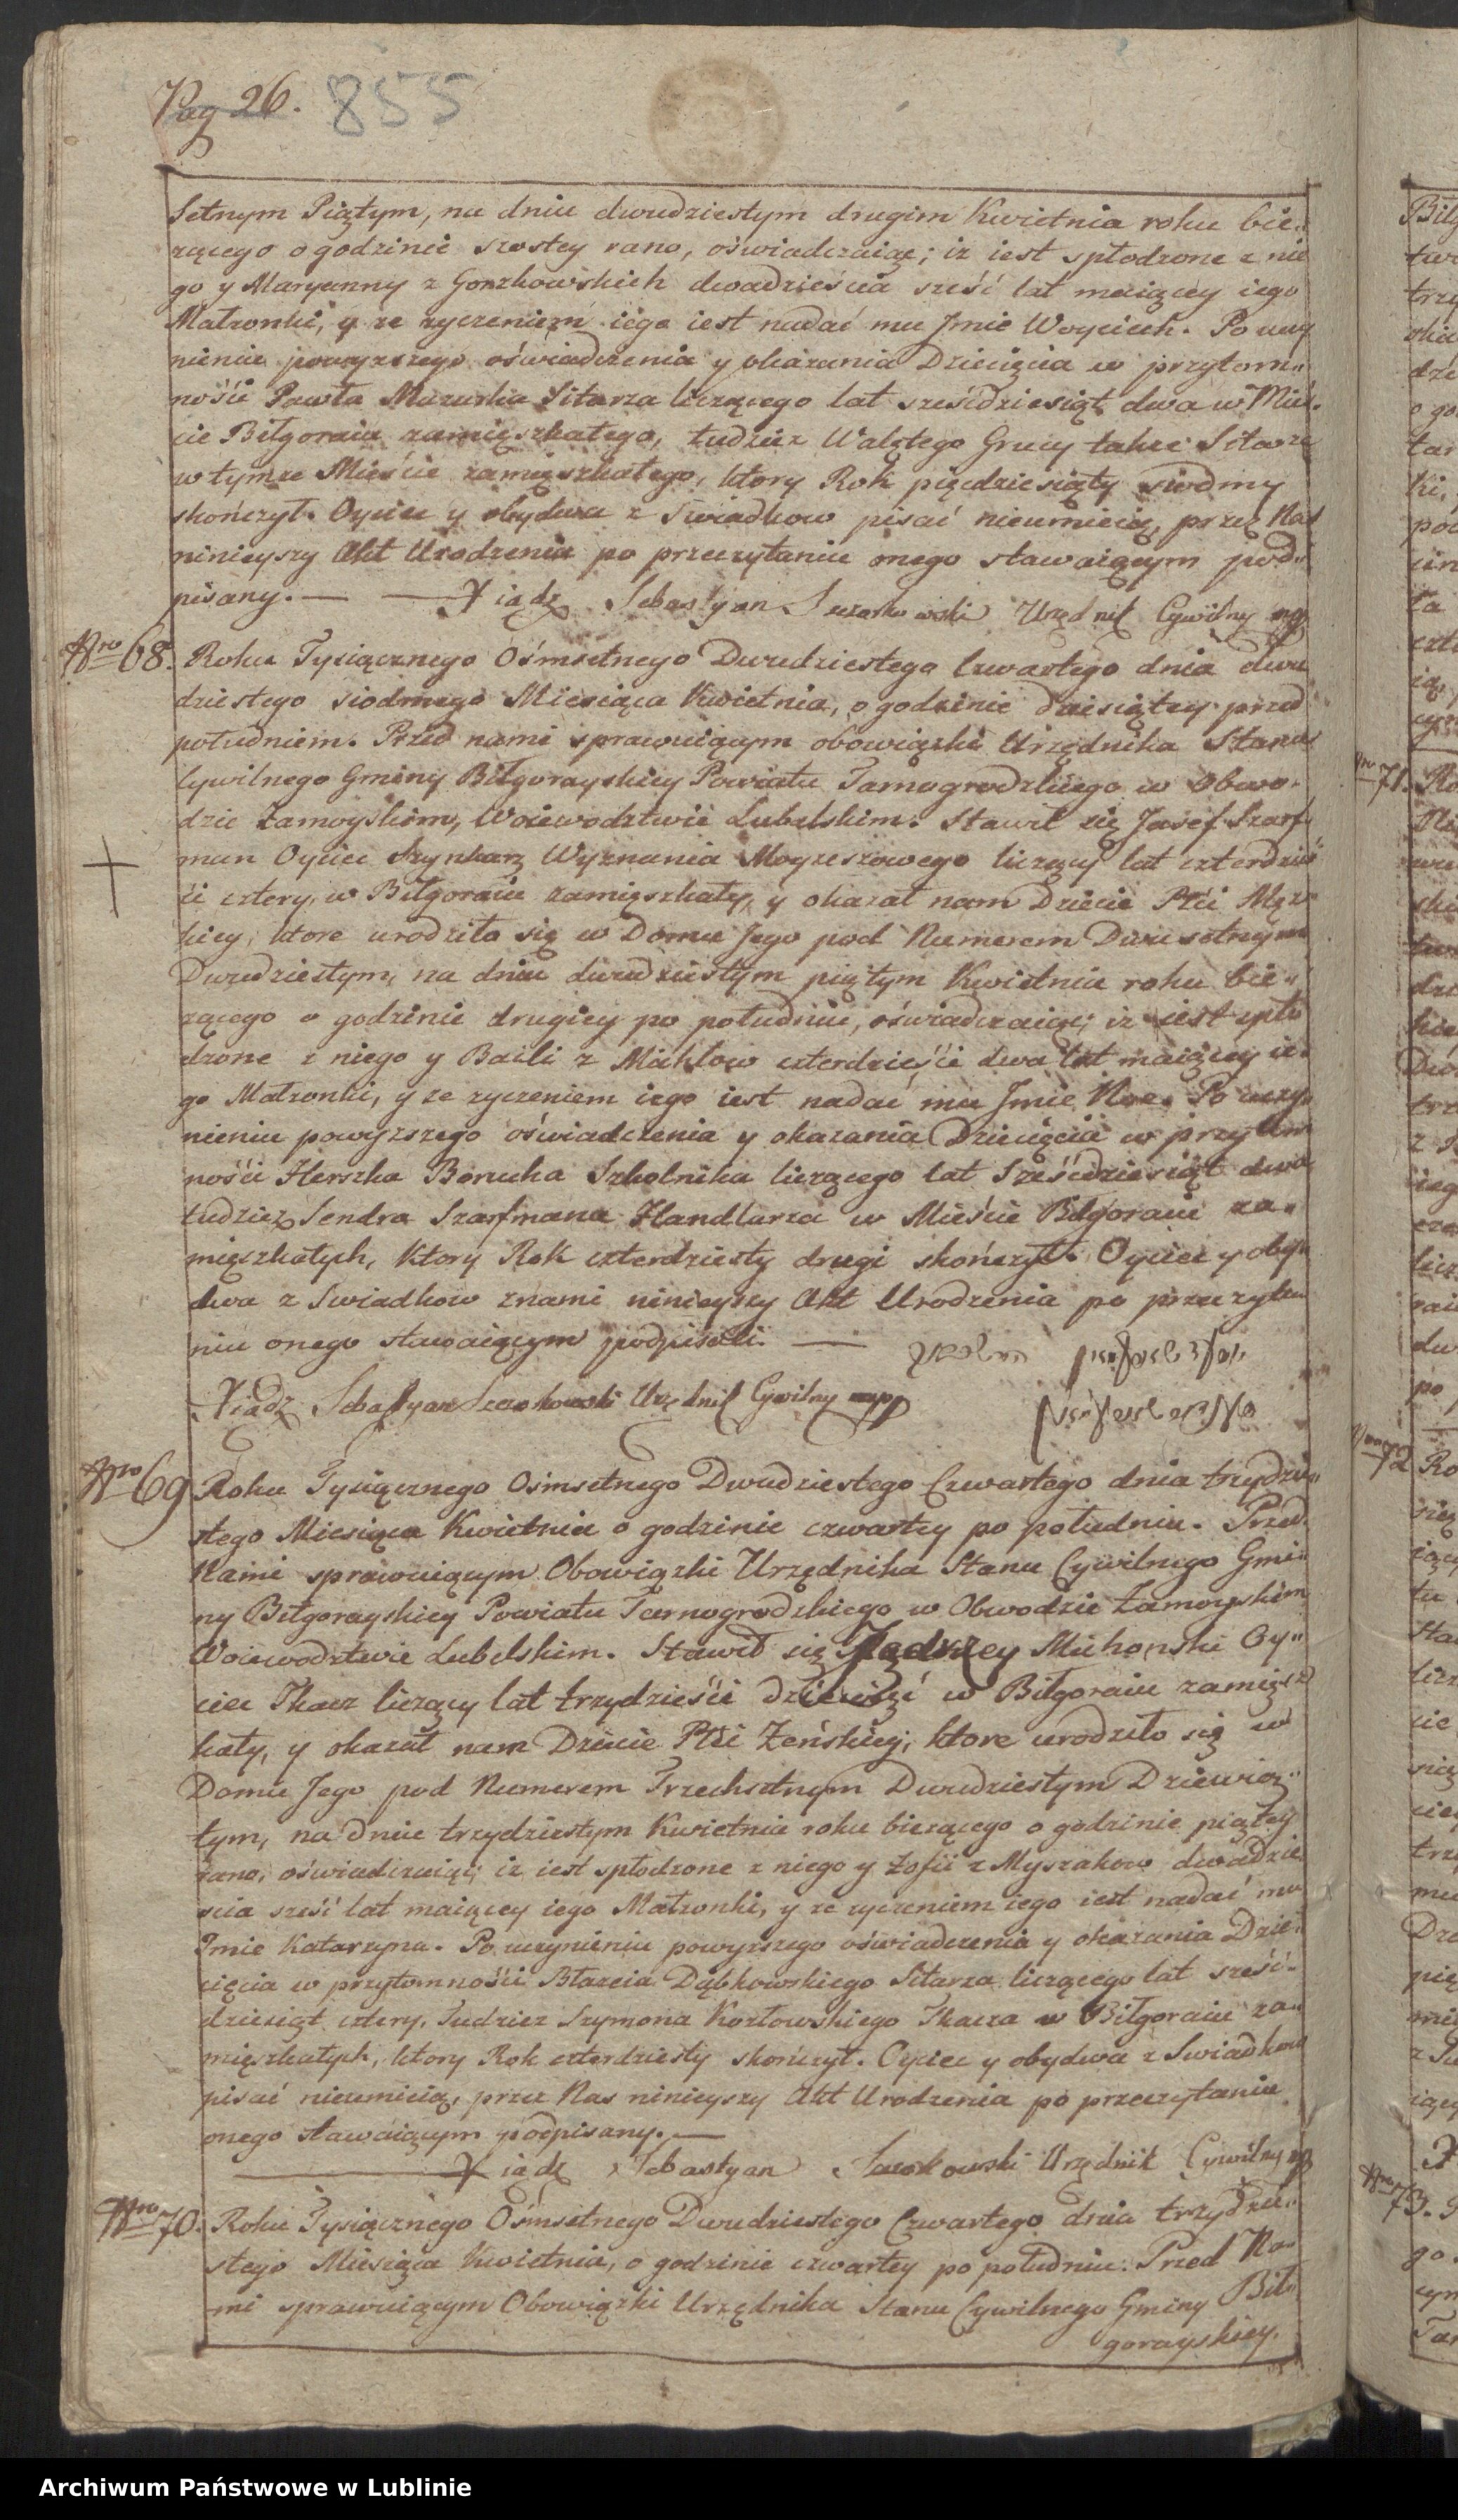 Pag 26. 855
Setnym Piątym, na dniu dwudziestym drugim Kwietnia roku bie„
rzącego o godzinie szostey rano, oświadczaiąc; iz iest spłodzone z nie
go y Maryanny z Gorzkowskich dwadzieścia sześć lat maiącey iego
Małzonki, y ze zyczeniem iego iest nadać mu Jmie Woyciech. Po uczy
nieniu powyzszego oświadczenia y okazania Dziecięcia w przytom„
ności Pawła Mazurka Sitarza liczącego lat sześćdziesiąt dwa w Mieś„
cie Biłgoraiu zamięszkałego, tudziez Walętego Grucy takze Sitarza
w tymze Mieście zamięszkałego, ktory Rok pięćdziesiąty siodmy
skończył. Oyciec y obydwa z Swiadkow pisać nieumieią, przez Nas
ninieyszy Akt Urodzenia po przeczytaniu onego stawaiącym pod„
pisany. — Xiądz Sebastyan Szczerkowski Urzędnik Cywilny mp
Nro 68. Roku Tysiącznego Ośmsetnego Dwudziestego Czwartego dnia dwu
dziestego siodmego Miesiąca Kwietnia, o godzinie dziesiątey przed
południem. Przed nami sprawuiącym obowiązki Urzędnika Stanu
Cywilnego Gminy Biłgorayskiey Powiatu Tarnogrodzkiego w Obwo„
dzie Zamoyskim, Woiewodztwie Lubelskim. Stawił się Josef Szarf
man Oyciec Szynkarz Wyznania Moyzeszowego liczący lat czterdzieś
ci cztery, w Biłgoraiu zamięszkały, y okazał nam Dziecie Płci Męz„
kiey, ktore urodziło się w Domu Jego pod Numerem Dwusetnym
Dwudziestym, na dniu dwudziestym piątym Kwietnia roku bie„
rzącego o godzinie drugiey po południu, oświadczaiąc; iz iest spło
dzone z niego y Baili z czterdzieści dwa lat maiącey ie„
go Małzonki, y ze zyczeniem iego iest nadać mu Jmie Po uczy„
nieniu powyzszego oświadczenia y okazania Dziecięcia w przytom
ności Herszka Borucha Szkolnika liczącego lat Sześćdziesiąt dwa
tudziez Sendra Szarfmana Handlarza w Mieście Biłgoraiu za„
mięszkałych, ktory Rok czterdziesty drugi skończył. Oyciec y oby„
dwa z Swiadkow znami ninieyszy Akt Urodzenia po przeczyta
niu onego stawaiącym podpisali. —
Xiądz Sebastyan Szczerkowski Urzędnik Cywilny mpp
Nro 69 Roku Tysiącznego Ośmsetnego Dwudziestego Czwartego dnia trzydzie„
stego Miesiąca Kwietnia o godzinie czwartey po południu. Przed
Nami sprawuiącym Obowiązki Urzędnika Stanu Cywilnego Gmi„
ny Biłgorayskiey Powiatu Tarnogrodzkiego w Obwodzie Zamoyskim
Woiewodztwie Lubelskim. Stawił się Jędrzey Michoński Oy„
ciec Tkacz liczący lat trzydzieści dziewięć w Biłgoraiu zamięsz
kały, y okazał nam Dziecie Płci Zeńskiey; ktore urodziło się w
Domu Jego pod Numerem Trzechsetnym Dwudziestym Dziewią„
tym, na dniu trzydziestym Kwietnia roku bierzącego o godzinie piątey
rano, oświadczaiąc; iz iest spłodzone z niego y Zofii z Myszakow dwadzie„
ścia sześć lat maiącey iego Małzonki, y ze zyczeniem iego iest nadać mu
Jmie Katarzyna. Po uczynieniu powyzszego oświadczenia y okazania Dzie„
cięcia w przytomności Błazeia Dąbkowskiego Sitarza liczącego lat sześć„
dziesiąt cztery, Tudziez Szymona Kozłowskiego Tkacza w Biłgoraiu za„
mięszkałych, ktory Rok czterdziesty skończył. Oyciec y obydwa z Swiadkow
pisać nieumieią, przez Nas ninieyszy Akt Urodzenia po przeczytaniu
onego stawaiącym podpisany. —
Xiądz Sebastyan Szczerkowski Urzędnik Cywilny mp
Nro 70. Roku Tysiącznego Ośmsetnego Dwudziestego Czwartego dnia trzydzie„
stego Miesiąca Kwietnia, o godzinie czwartey po południu. Przed Na„
mi sprawuiącym Obowiązki Urzędnika Stanu Cywilnego Gminy Bił„
gorayskiey.
Nro 71.
72
Nro 73.
Archiwum Państwowe w Lublinie